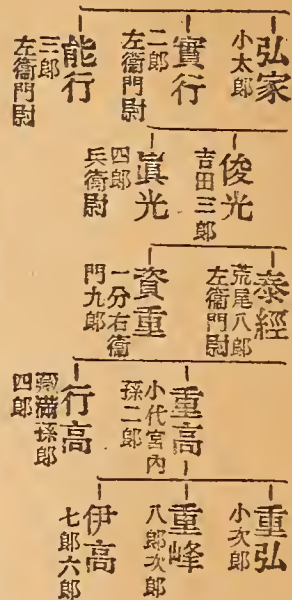 弘家
小太郎
實行
二郎
左衞門尉
能行
三郎
左衞門尉
俊光
吉田三郎
眞光
四郎
兵衞尉
泰經
荒尾八郎
左衞門尉
資重
一分右衞
門九郎
重高
小代宮內
孫二郎
行高
滿孫郎
四郎
重弘
小次郎
重峰
八郎次郎
伊高
七郎六郎